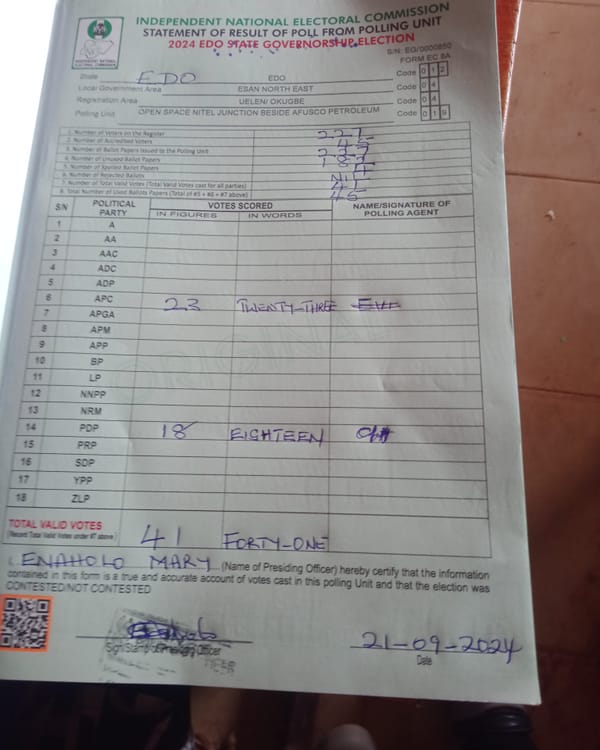 INDEPENDENT NATIONAL ELECTORAL COMMISSION
STATEMENT OF RESULT OF POLL FROM POLLING UNIT
2024 EDO STATE GOVERNORSHIP ELECTION
INDEPENDENT NATIONAL ELECTORAL COMMISSION
S/N: EG/0000850
FORM EC 8A
State EDO EDO Code 0 1 2
Local Government Area ESAN NORTH EAST Code 0 4
Registration Area UELEN/ OKUGBE Code 0 4
Polling Unit OPEN SPACE NITEL JUNCTION BESIDE AFUSCO PETROLEUM Code 0 1 9
1. Number of Voters on the Register
2. Number of Accredited Voters
3. Number of Ballot Papers Issued to the Polling Unit
4. Number of Unused Ballot Papers
5. Number of Spoiled Ballot Papers
6. Number of Rejected Ballots
7. Number of Total Valid Votes (Total Valid Votes cast for all parties) 41
8. Total Number of Used Ballots Papers (Total of #5 + #6 + #7 above) 45
S/N POLITICAL PARTY VOTES SCORED NAME/SIGNATURE OF POLLING AGENT
IN FIGURES IN WORDS
1 A
2 AA
3 AAC
4 ADC
5 ADP
6 APC 23 TWENTY-THREE
7 APGA
8 APM
9 APP
10 BP
11 LP
12 NNPP
13 NRM
14 PDP 18 EIGHTEEN
15 PRP
16 SDP
17 YPP
18 ZLP
TOTAL VALID VOTES 41 FORTY-ONE
(Record Total Valid Votes under #7 above)
I, ENAHOLO MARY (Name of Presiding Officer) hereby certify that the information
contained in this form is a true and accurate account of votes cast in this polling Unit and that the election was
CONTESTED/NOT CONTESTED
21-09-2024
Sign/Stamp of Presiding Officer Date